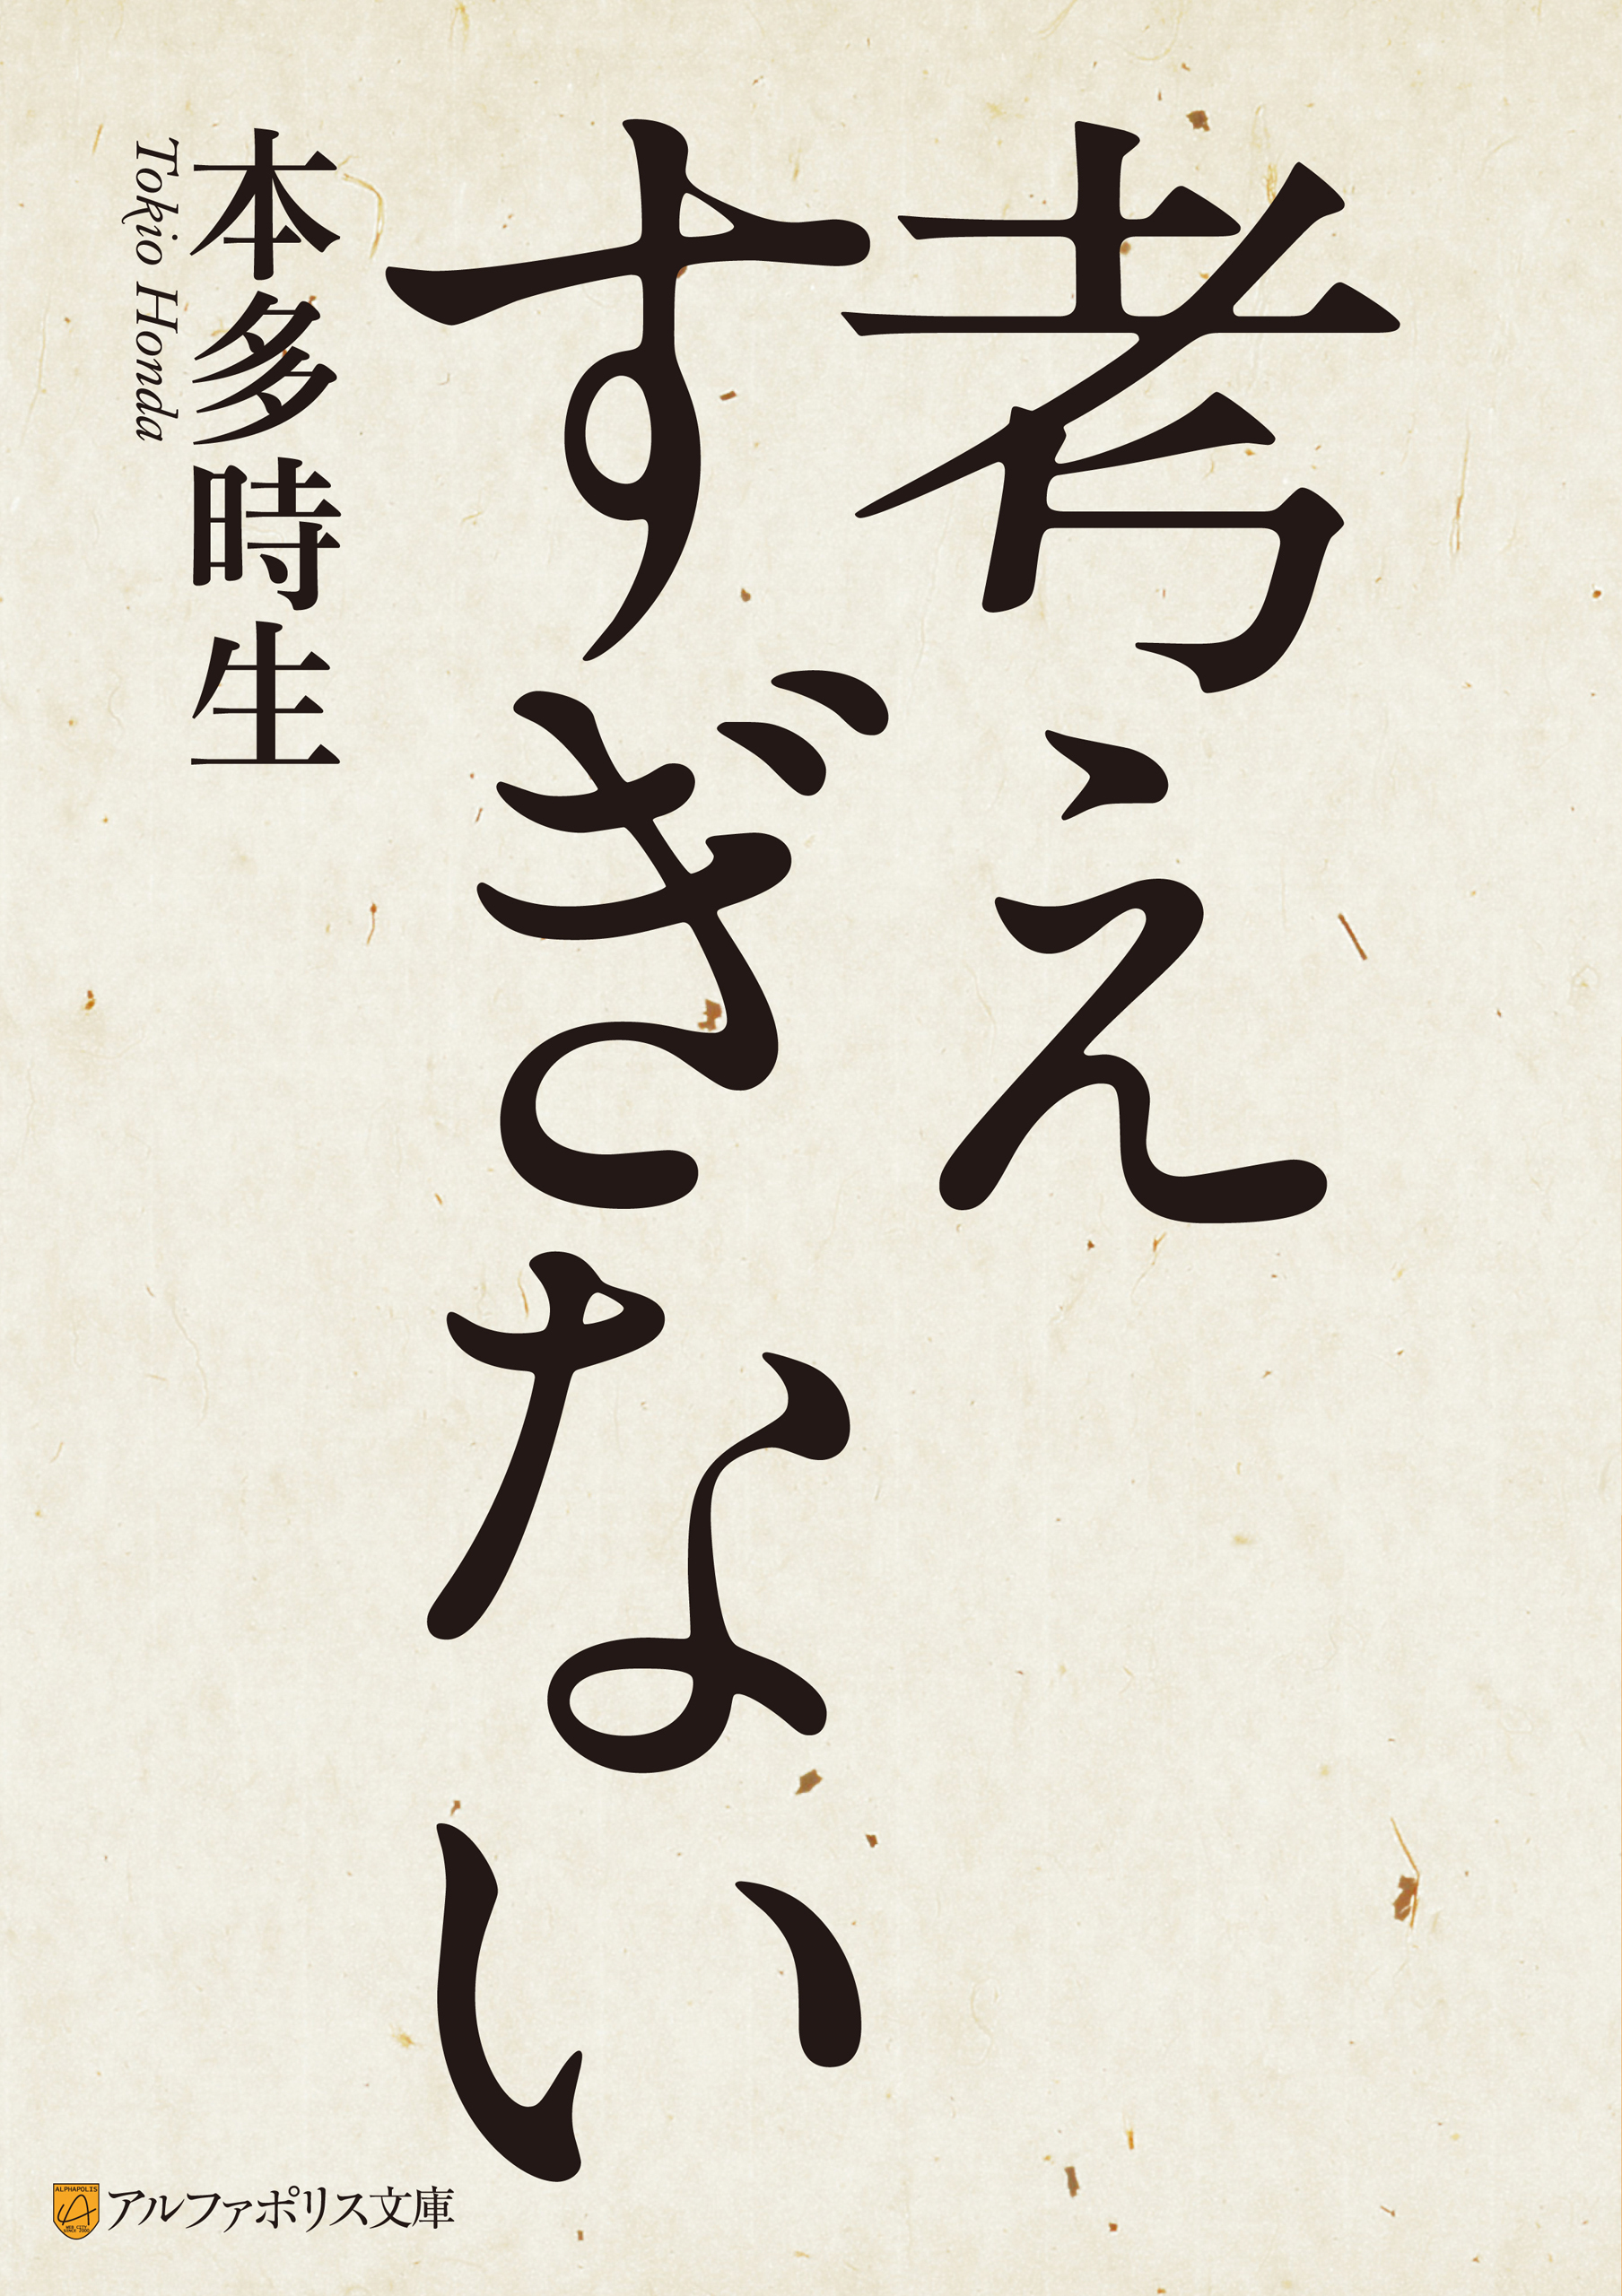 考え
すぎない
本多時生
Tokio Honda
ALPHAPOLIS
アルファポリス文庫